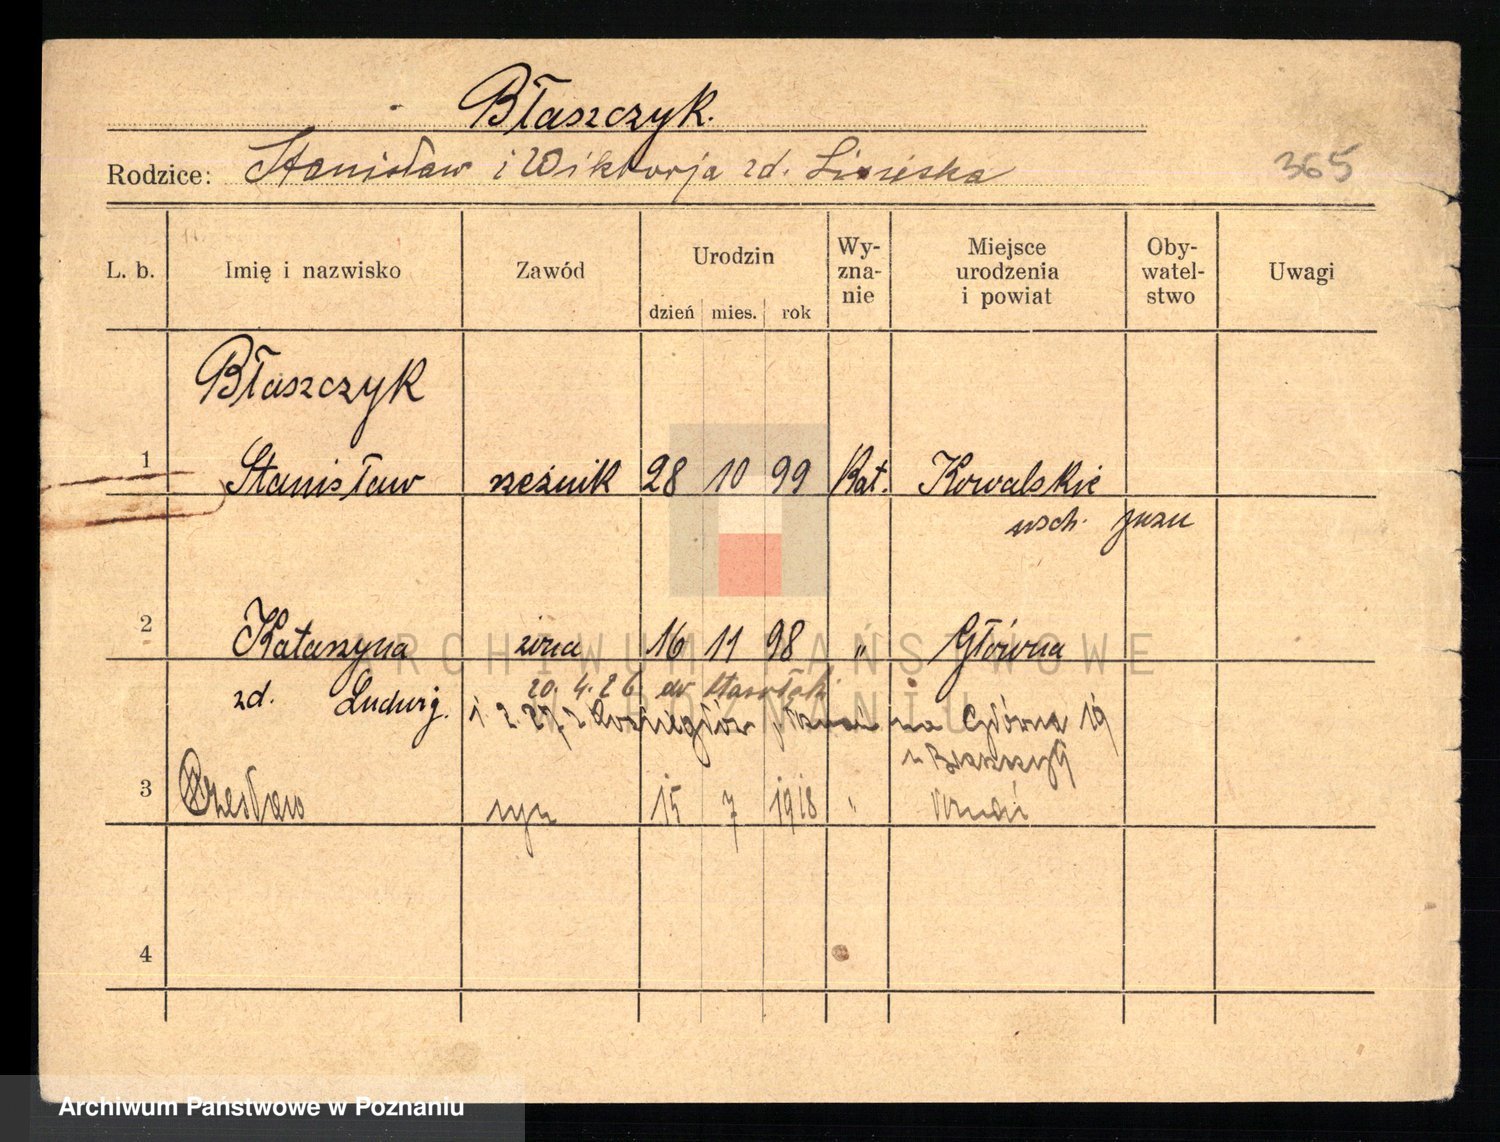 Błaszczyk.
Rodzice: Stanisław i Wiktorja zd.
365
L. b. Imię i nazwisko Zawód Urodzin dzień mies. rok Wy-zna-nie Miejsce urodzenia i powiat Oby-watel-stwo Uwagi
Błaszczyk
1 Stanisław rzeźnik 28 10 99 Kat. Kowalskie
wsch.
2 Katarzyna żona 16 11 98 „ Główna
zd. Ludwig.
20. 4. 26
1. 2. 27 na Główna 19
3 Czesław syn 15 7 1918 „
4
ARCHIWUM PAŃSTWOWE
W POZNANIU
Archiwum Państwowe w Poznaniu